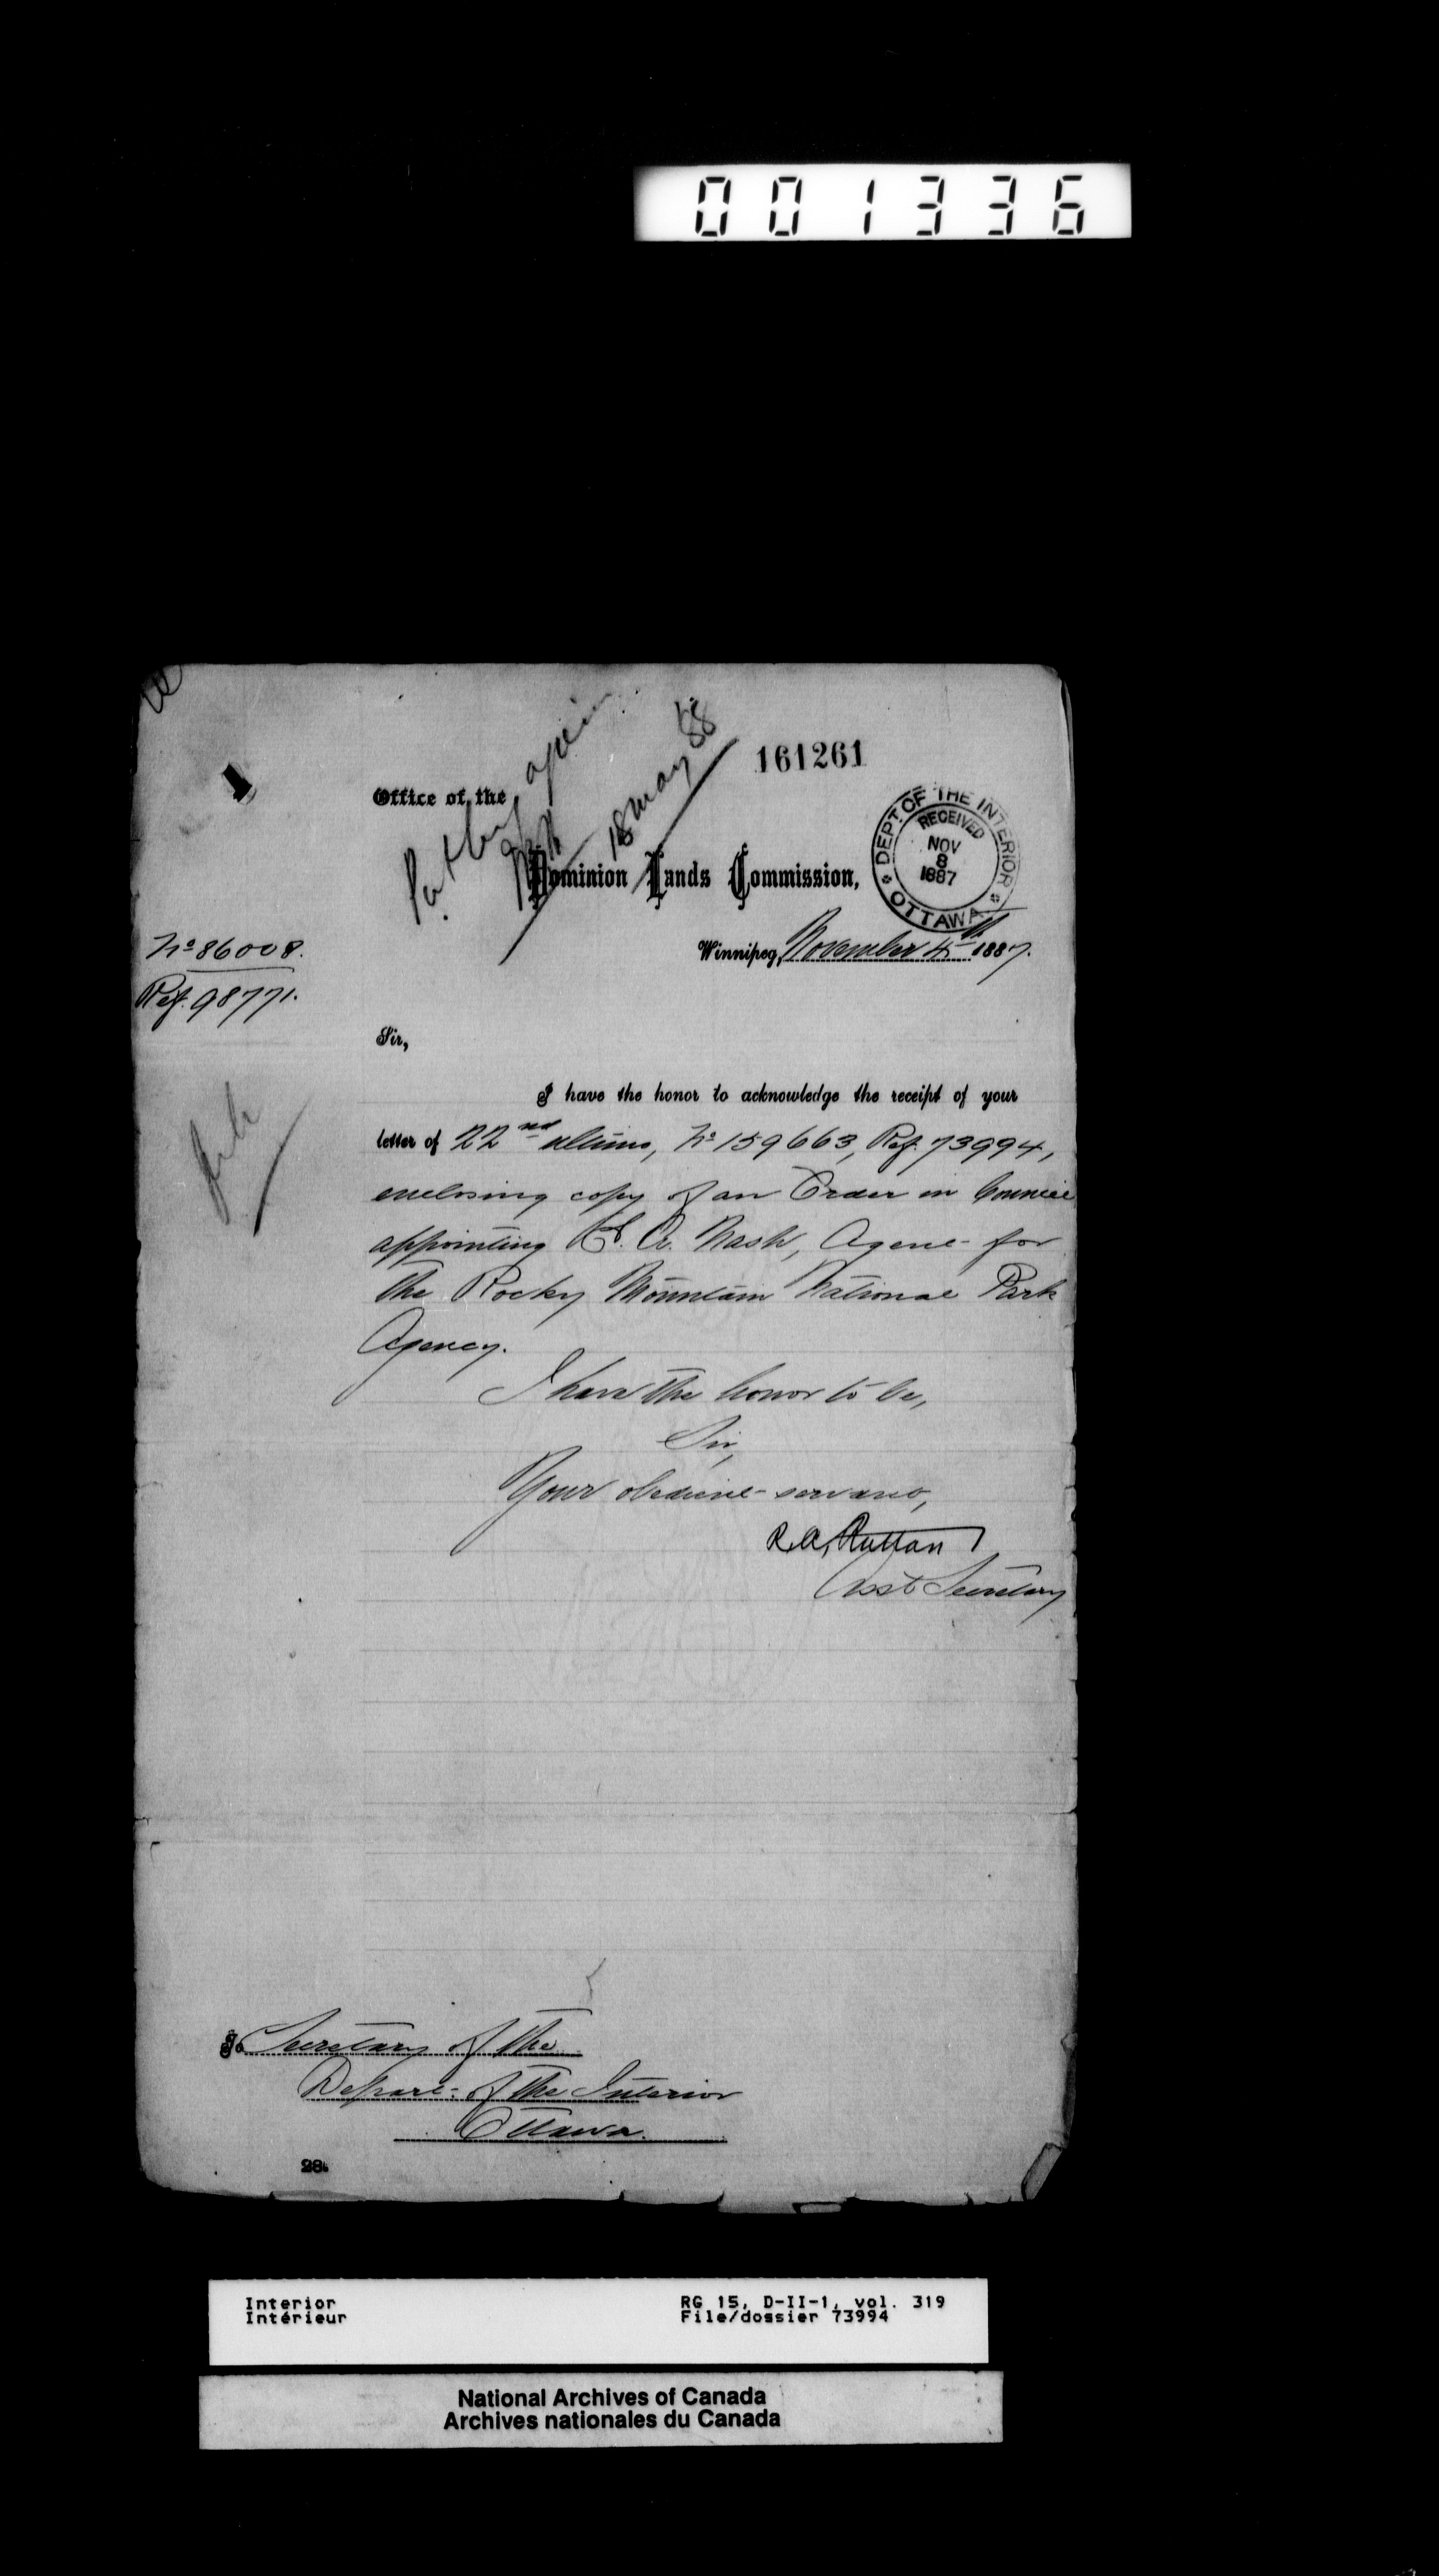 001336
161261
Put by again
18 May 88
Office of the
Dominion Lands Commission,
DEPT. OF THE INTERIOR
RECEIVED
NOV
8
1887
OTTAWA
Winnipeg, November 4th 1887.
No 86008.
Ref. 98771.
Sir,
I have the honor to acknowledge the receipt of your
letter of 22nd ultimo, No 159663, Ref. 73994,
enclosing copy of an Order in Council
appointing A. Nash, Agent for
the Rocky Mountain National Park
Agency.
I have the honor to be,
Sir,
Your obedient servant,
R. A. Ruttan
Asst Secretary
To Secretary of the
Depart. of the Interior
Ottawa.
28.
Interior
Intérieur
RG 15, D-II-1, vol. 319
File/dossier 73994
National Archives of Canada
Archives nationales du Canada